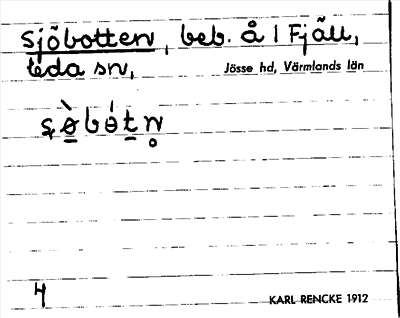 Sjöbotten, beb. å 1 Fjäll,
Eda sn, Jösse hd, Värmlands län
4 KARL RENCKE 1912